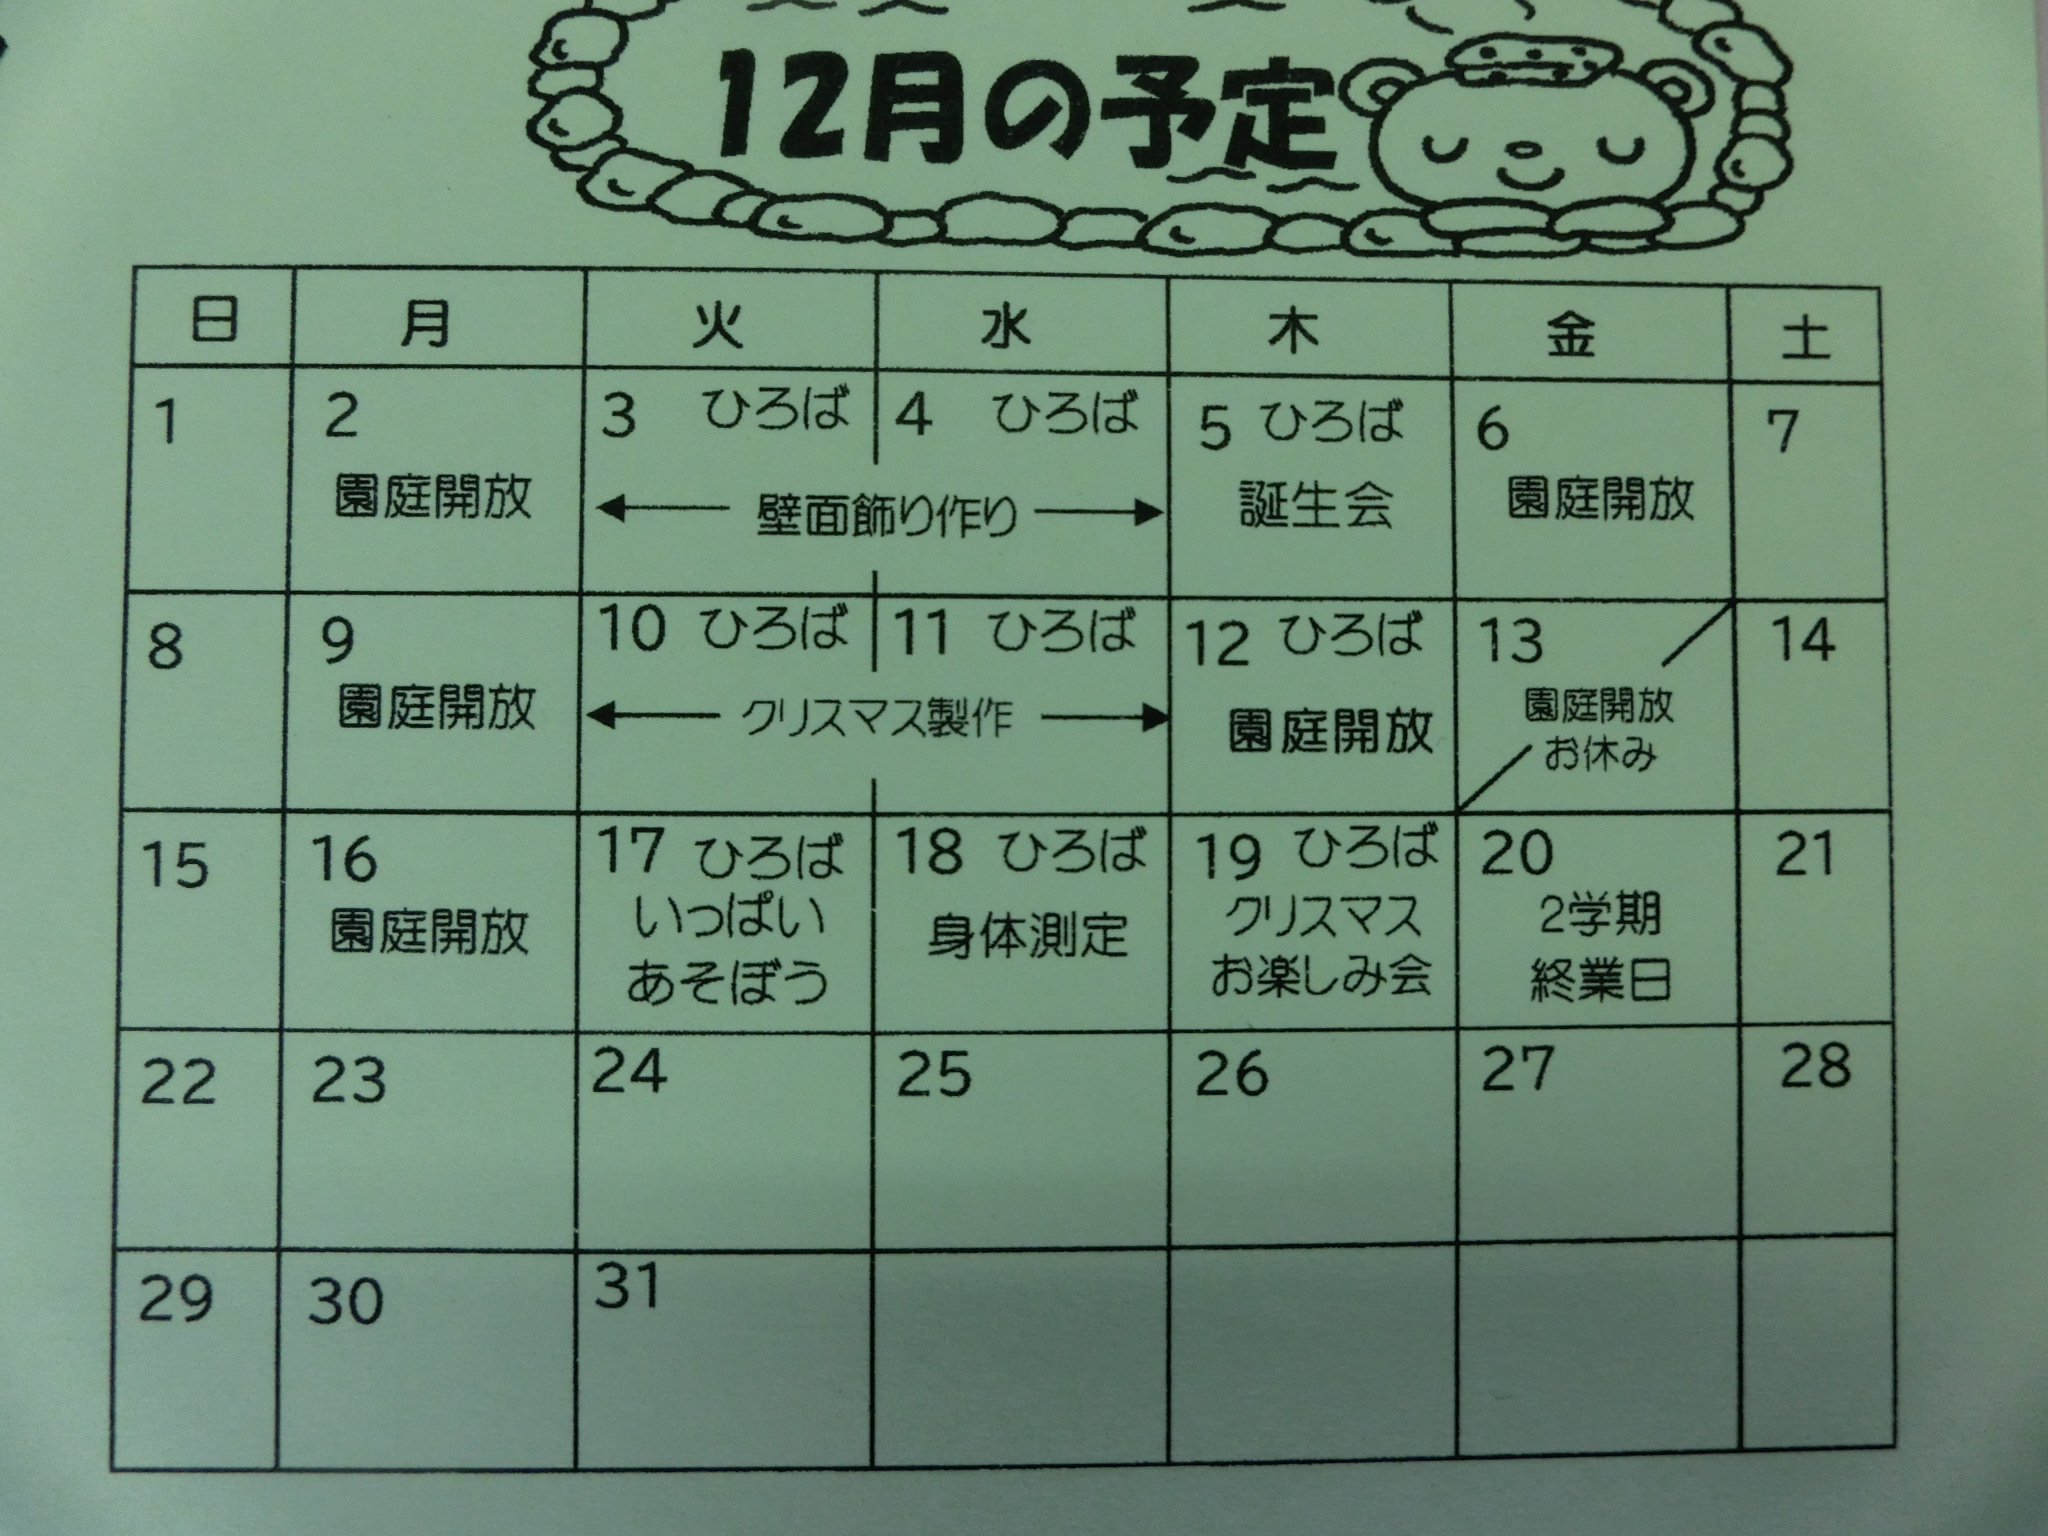 12月の予定
日 月 火 水 木 金 土
1 2 3 ひろば 4 ひろば 5 ひろば 6 7
園庭開放 壁面飾り作り 誕生会 園庭開放
8 9 10 ひろば 11 ひろば 12 ひろば 13 14
園庭開放 クリスマス製作 園庭開放 園庭開放
お休み
15 16 17 ひろば 18 ひろば 19 ひろば 20 21
園庭開放 いっぱい 身体測定 クリスマス 2学期
あそぼう お楽しみ会 終業日
22 23 24 25 26 27 28
29 30 31